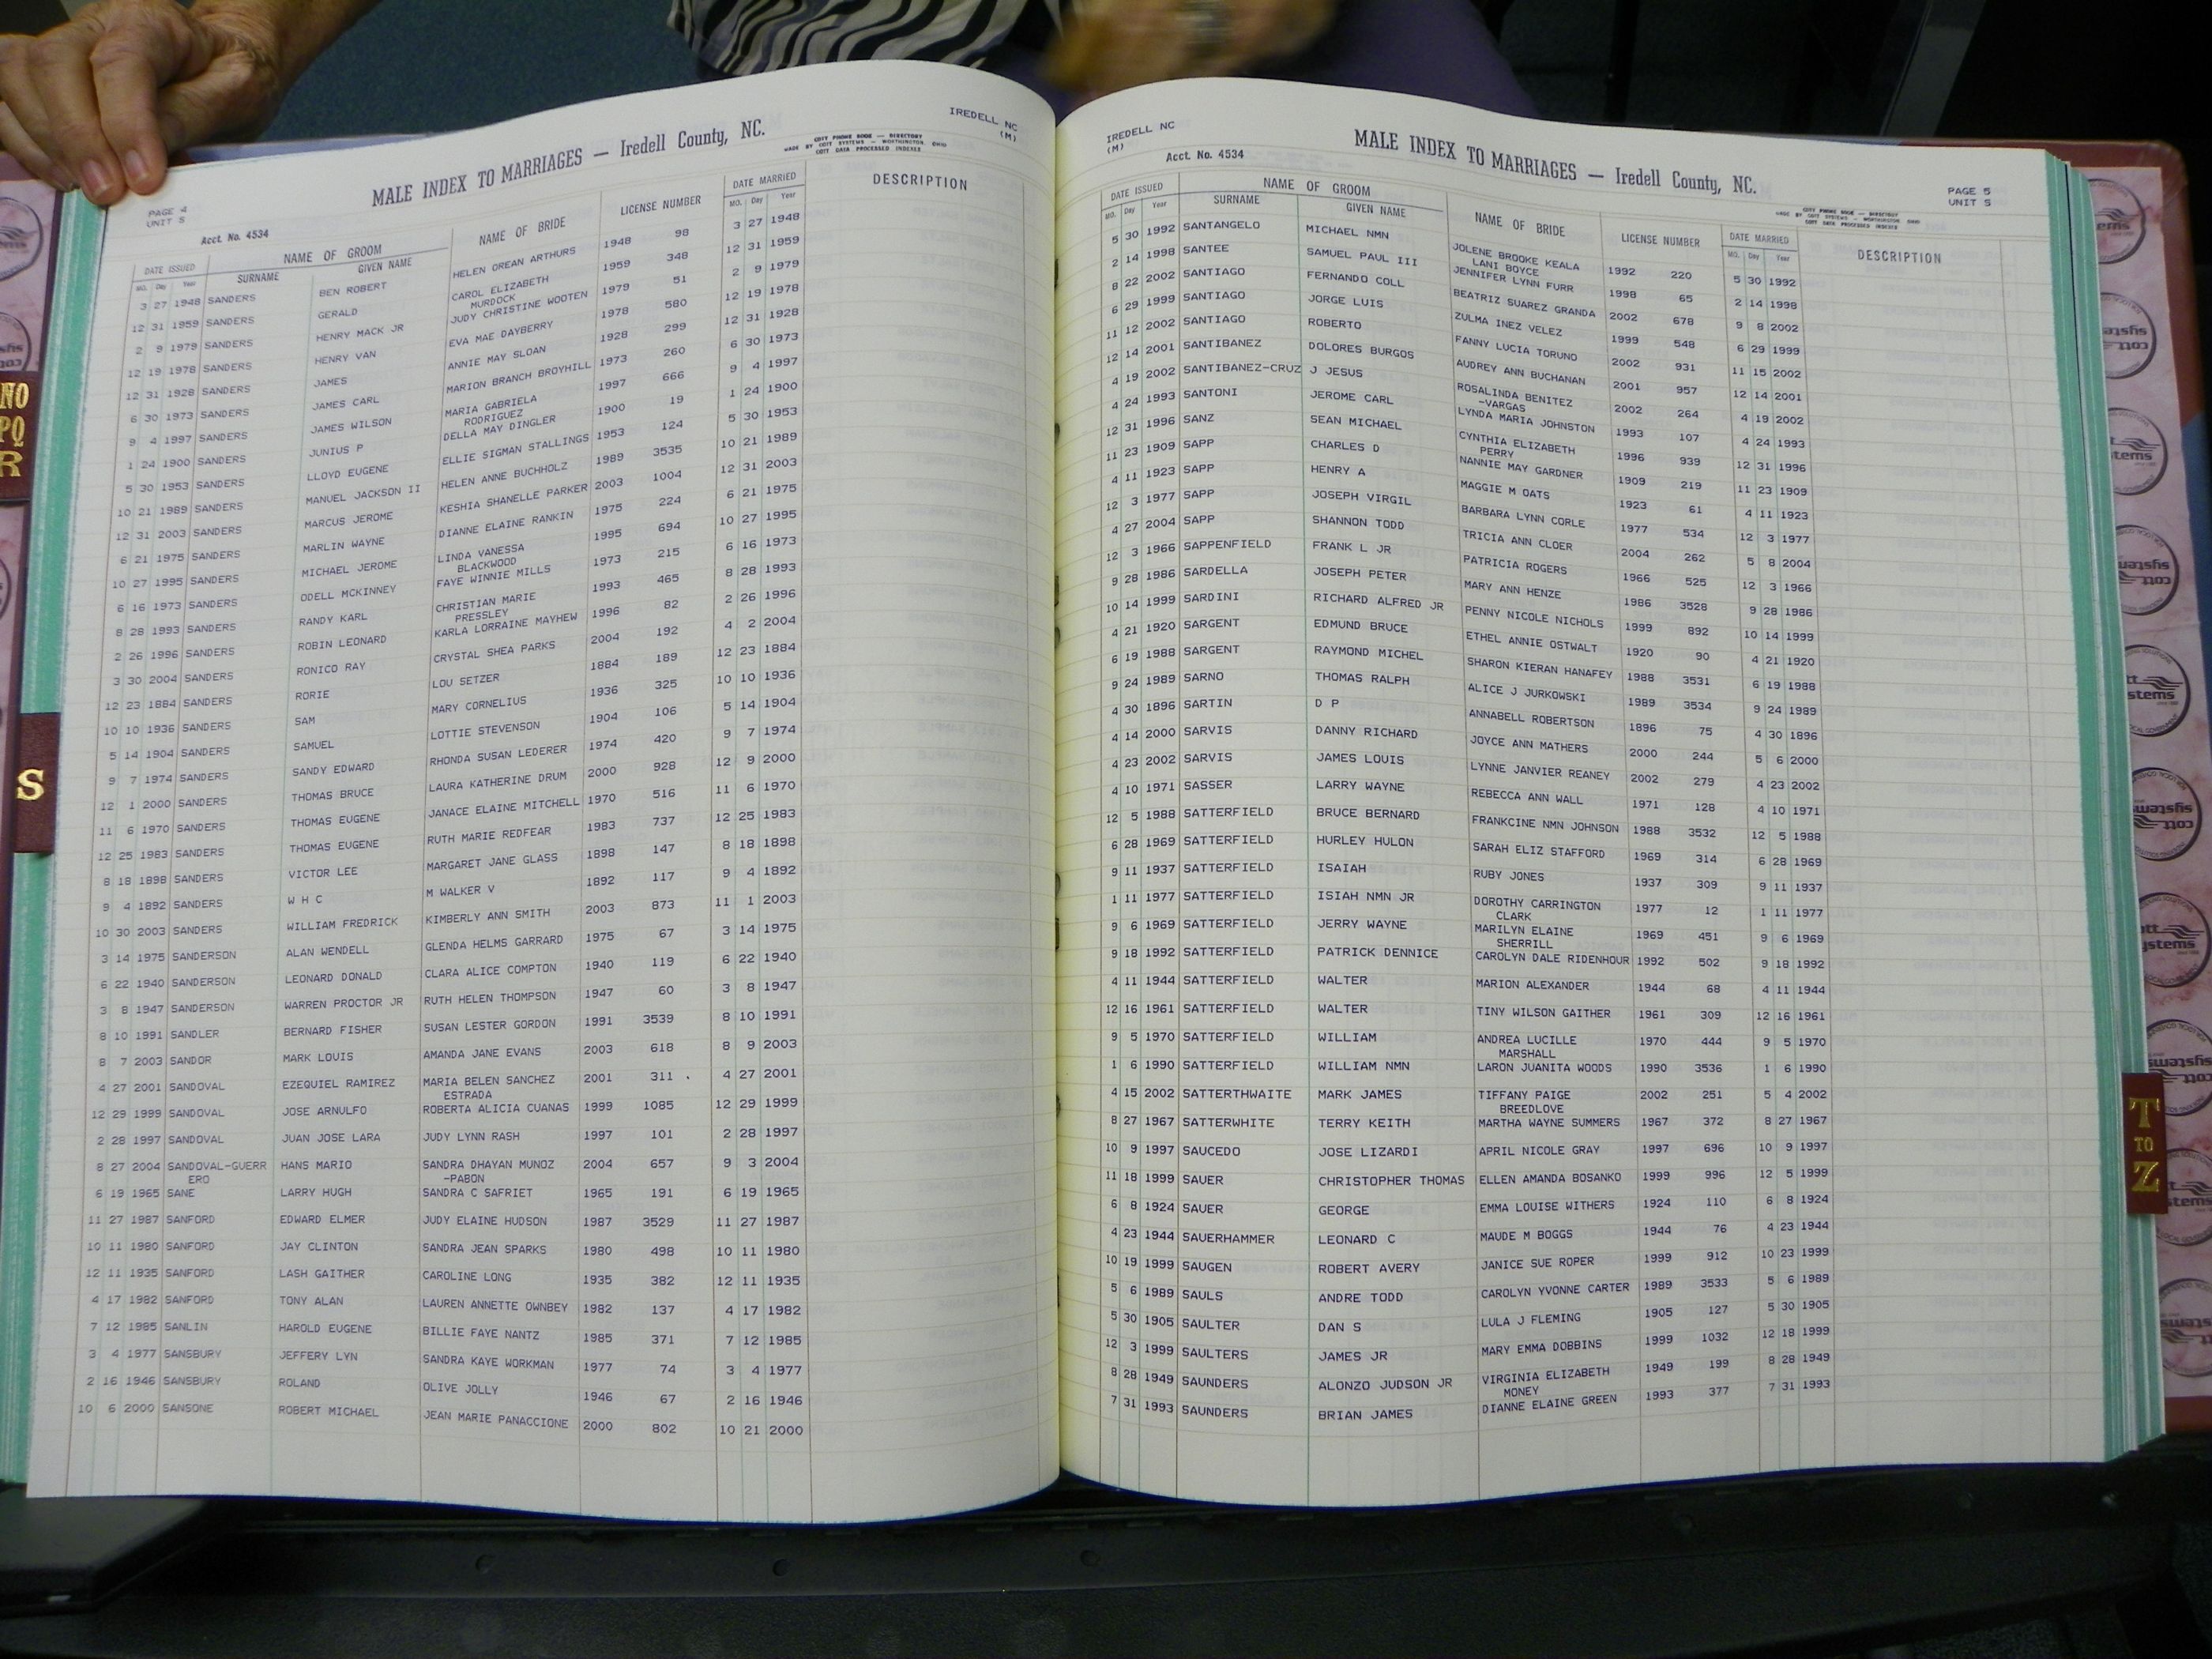 IREDELL NC
(M)
MALE INDEX TO MARRIAGES — Iredell County, NC.
COTT PHONE BOOK — DIRECTORY
MADE BY COTT SYSTEMS — WORTHINGTON OHIO
COTT DATA PROCESSED INDEXES
PAGE 4
UNIT S
Acct. No. 4534
DATE ISSUED NAME OF GROOM NAME OF BRIDE LICENSE NUMBER DATE MARRIED DESCRIPTION
MO. Day Year SURNAME GIVEN NAME MO. Day Year
3 27 1948 SANDERS BEN ROBERT HELEN OREAN ARTHURS 1948 98 3 27 1948
12 31 1959 SANDERS GERALD CAROL ELIZABETH 1959 348 12 31 1959
MURDOCK
2 9 1979 SANDERS HENRY MACK JR JUDY CHRISTINE WOOTEN 1979 51 2 9 1979
12 19 1978 SANDERS HENRY VAN EVA MAE DAYBERRY 1978 580 12 19 1978
12 31 1928 SANDERS JAMES ANNIE MAY SLOAN 1928 299 12 31 1928
6 30 1973 SANDERS JAMES CARL MARION BRANCH BROYHILL 1973 260 6 30 1973
9 4 1997 SANDERS JAMES WILSON MARIA GABRIELA 1997 666 9 4 1997
RODRIGUEZ
1 24 1900 SANDERS JUNIUS P DELLA MAY DINGLER 1900 19 1 24 1900
5 30 1953 SANDERS LLOYD EUGENE ELLIE SIGMAN STALLINGS 1953 124 5 30 1953
10 21 1989 SANDERS MANUEL JACKSON II HELEN ANNE BUCHHOLZ 1989 3535 10 21 1989
12 31 2003 SANDERS MARCUS JEROME KESHIA SHANELLE PARKER 2003 1004 12 31 2003
6 21 1975 SANDERS MARLIN WAYNE DIANNE ELAINE RANKIN 1975 224 6 21 1975
10 27 1995 SANDERS MICHAEL JEROME LINDA VANESSA 1995 694 10 27 1995
BLACKWOOD
6 16 1973 SANDERS ODELL MCKINNEY FAYE WINNIE MILLS 1973 215 6 16 1973
8 28 1993 SANDERS RANDY KARL CHRISTIAN MARIE 1993 465 8 28 1993
PRESSLEY
2 26 1996 SANDERS ROBIN LEONARD KARLA LORRAINE MAYHEW 1996 82 2 26 1996
3 30 2004 SANDERS RONICO RAY CRYSTAL SHEA PARKS 2004 192 4 2 2004
12 23 1884 SANDERS RORIE LOU SETZER 1884 189 12 23 1884
10 10 1936 SANDERS SAM MARY CORNELIUS 1936 325 10 10 1936
5 14 1904 SANDERS SAMUEL LOTTIE STEVENSON 1904 106 5 14 1904
9 7 1974 SANDERS SANDY EDWARD RHONDA SUSAN LEDERER 1974 420 9 7 1974
12 1 2000 SANDERS THOMAS BRUCE LAURA KATHERINE DRUM 2000 928 12 9 2000
11 6 1970 SANDERS THOMAS EUGENE JANACE ELAINE MITCHELL 1970 516 11 6 1970
12 25 1983 SANDERS THOMAS EUGENE RUTH MARIE REDFEAR 1983 737 12 25 1983
8 18 1898 SANDERS VICTOR LEE MARGARET JANE GLASS 1898 147 8 18 1898
9 4 1892 SANDERS W H C M WALKER V 1892 117 9 4 1892
10 30 2003 SANDERS WILLIAM FREDRICK KIMBERLY ANN SMITH 2003 873 11 1 2003
3 14 1975 SANDERSON ALAN WENDELL GLENDA HELMS GARRARD 1975 67 3 14 1975
6 22 1940 SANDERSON LEONARD DONALD CLARA ALICE COMPTON 1940 119 6 22 1940
3 8 1947 SANDERSON WARREN PROCTOR JR RUTH HELEN THOMPSON 1947 60 3 8 1947
8 10 1991 SANDLER BERNARD FISHER SUSAN LESTER GORDON 1991 3539 8 10 1991
8 7 2003 SANDOR MARK LOUIS AMANDA JANE EVANS 2003 618 8 9 2003
4 27 2001 SANDOVAL EZEQUIEL RAMIREZ MARIA BELEN SANCHEZ 2001 311 4 27 2001
ESTRADA
12 29 1999 SANDOVAL JOSE ARNULFO ROBERTA ALICIA CUANAS 1999 1085 12 29 1999
2 28 1997 SANDOVAL JUAN JOSE LARA JUDY LYNN RASH 1997 101 2 28 1997
8 27 2004 SANDOVAL-GUERR HANS MARIO SANDRA DHAYAN MUNOZ 2004 657 9 3 2004
ERO -PABON
6 19 1965 SANE LARRY HUGH SANDRA C SAFRIET 1965 191 6 19 1965
11 27 1987 SANFORD EDWARD ELMER JUDY ELAINE HUDSON 1987 3529 11 27 1987
10 11 1980 SANFORD JAY CLINTON SANDRA JEAN SPARKS 1980 498 10 11 1980
12 11 1935 SANFORD LASH GAITHER CAROLINE LONG 1935 382 12 11 1935
4 17 1982 SANFORD TONY ALAN LAUREN ANNETTE OWNBEY 1982 137 4 17 1982
7 12 1985 SANLIN HAROLD EUGENE BILLIE FAYE NANTZ 1985 371 7 12 1985
3 4 1977 SANSBURY JEFFERY LYN SANDRA KAYE WORKMAN 1977 74 3 4 1977
2 16 1946 SANSBURY ROLAND OLIVE JOLLY 1946 67 2 16 1946
10 6 2000 SANSONE ROBERT MICHAEL JEAN MARIE PANACCIONE 2000 802 10 21 2000
IREDELL NC
(M)
Acct. No. 4534
MALE INDEX TO MARRIAGES — Iredell County, NC.
COTT PHONE BOOK — DIRECTORY
MADE BY COTT SYSTEMS — WORTHINGTON OHIO
COTT DATA PROCESSED INDEXES
PAGE 5
UNIT S
DATE ISSUED NAME OF GROOM NAME OF BRIDE LICENSE NUMBER DATE MARRIED DESCRIPTION
MO. Day Year SURNAME GIVEN NAME MO. Day Year
5 30 1992 SANTANGELO MICHAEL NMN JOLENE BROOKE KEALA 1992 220 5 30 1992
LANI BOYCE
2 14 1998 SANTEE SAMUEL PAUL III JENNIFER LYNN FURR 1998 65 2 14 1998
8 22 2002 SANTIAGO FERNANDO COLL BEATRIZ SUAREZ GRANDA 2002 678 9 8 2002
6 29 1999 SANTIAGO JORGE LUIS ZULMA INEZ VELEZ 1999 548 6 29 1999
11 12 2002 SANTIAGO ROBERTO FANNY LUCIA TORUNO 2002 931 11 15 2002
12 14 2001 SANTIBANEZ DOLORES BURGOS AUDREY ANN BUCHANAN 2001 957 12 14 2001
4 19 2002 SANTIBANEZ-CRUZ J JESUS ROSALINDA BENITEZ 2002 264 4 19 2002
-VARGAS
4 24 1993 SANTONI JEROME CARL LYNDA MARIA JOHNSTON 1993 107 4 24 1993
12 31 1996 SANZ SEAN MICHAEL CYNTHIA ELIZABETH 1996 939 12 31 1996
PERRY
11 23 1909 SAPP CHARLES D NANNIE MAY GARDNER 1909 219 11 23 1909
4 11 1923 SAPP HENRY A MAGGIE M OATS 1923 61 4 11 1923
12 3 1977 SAPP JOSEPH VIRGIL BARBARA LYNN CORLE 1977 534 12 3 1977
4 27 2004 SAPP SHANNON TODD TRICIA ANN CLOER 2004 262 5 8 2004
12 3 1966 SAPPENFIELD FRANK L JR PATRICIA ROGERS 1966 525 12 3 1966
9 28 1986 SARDELLA JOSEPH PETER MARY ANN HENZE 1986 3528 9 28 1986
10 14 1999 SARDINI RICHARD ALFRED JR PENNY NICOLE NICHOLS 1999 892 10 14 1999
4 21 1920 SARGENT EDMUND BRUCE ETHEL ANNIE OSTWALT 1920 90 4 21 1920
6 19 1988 SARGENT RAYMOND MICHEL SHARON KIERAN HANAFEY 1988 3531 6 19 1988
9 24 1989 SARNO THOMAS RALPH ALICE J JURKOWSKI 1989 3534 9 24 1989
4 30 1896 SARTIN D P ANNABELL ROBERTSON 1896 75 4 30 1896
4 14 2000 SARVIS DANNY RICHARD JOYCE ANN MATHERS 2000 244 5 6 2000
4 23 2002 SARVIS JAMES LOUIS LYNNE JANVIER REANEY 2002 279 4 23 2002
4 10 1971 SASSER LARRY WAYNE REBECCA ANN WALL 1971 128 4 10 1971
12 5 1988 SATTERFIELD BRUCE BERNARD FRANKCINE NMN JOHNSON 1988 3532 12 5 1988
6 28 1969 SATTERFIELD HURLEY HULON SARAH ELIZ STAFFORD 1969 314 6 28 1969
9 11 1937 SATTERFIELD ISAIAH RUBY JONES 1937 309 9 11 1937
1 11 1977 SATTERFIELD ISIAH NMN JR DOROTHY CARRINGTON 1977 12 1 11 1977
CLARK
9 6 1969 SATTERFIELD JERRY WAYNE MARILYN ELAINE 1969 451 9 6 1969
SHERRILL
9 18 1992 SATTERFIELD PATRICK DENNICE CAROLYN DALE RIDENHOUR 1992 502 9 18 1992
4 11 1944 SATTERFIELD WALTER MARION ALEXANDER 1944 68 4 11 1944
12 16 1961 SATTERFIELD WALTER TINY WILSON GAITHER 1961 309 12 16 1961
9 5 1970 SATTERFIELD WILLIAM ANDREA LUCILLE 1970 444 9 5 1970
MARSHALL
1 6 1990 SATTERFIELD WILLIAM NMN LARON JUANITA WOODS 1990 3536 1 6 1990
4 15 2002 SATTERTHWAITE MARK JAMES TIFFANY PAIGE 2002 251 5 4 2002
BREEDLOVE
8 27 1967 SATTERWHITE TERRY KEITH MARTHA WAYNE SUMMERS 1967 372 8 27 1967
10 9 1997 SAUCEDO JOSE LIZARDI APRIL NICOLE GRAY 1997 696 10 9 1997
11 18 1999 SAUER CHRISTOPHER THOMAS ELLEN AMANDA BOSANKO 1999 996 12 5 1999
6 8 1924 SAUER GEORGE EMMA LOUISE WITHERS 1924 110 6 8 1924
4 23 1944 SAUERHAMMER LEONARD C MAUDE M BOGGS 1944 76 4 23 1944
10 19 1999 SAUGEN ROBERT AVERY JANICE SUE ROPER 1999 912 10 23 1999
5 6 1989 SAULS ANDRE TODD CAROLYN YVONNE CARTER 1989 3533 5 6 1989
5 30 1905 SAULTER DAN S LULA J FLEMING 1905 127 5 30 1905
12 3 1999 SAULTERS JAMES JR MARY EMMA DOBBINS 1999 1032 12 18 1999
8 28 1949 SAUNDERS ALONZO JUDSON JR VIRGINIA ELIZABETH 1949 199 8 28 1949
MONEY
7 31 1993 SAUNDERS BRIAN JAMES DIANNE ELAINE GREEN 1993 377 7 31 1993
NO
PQ
R
S
T
TO
Z